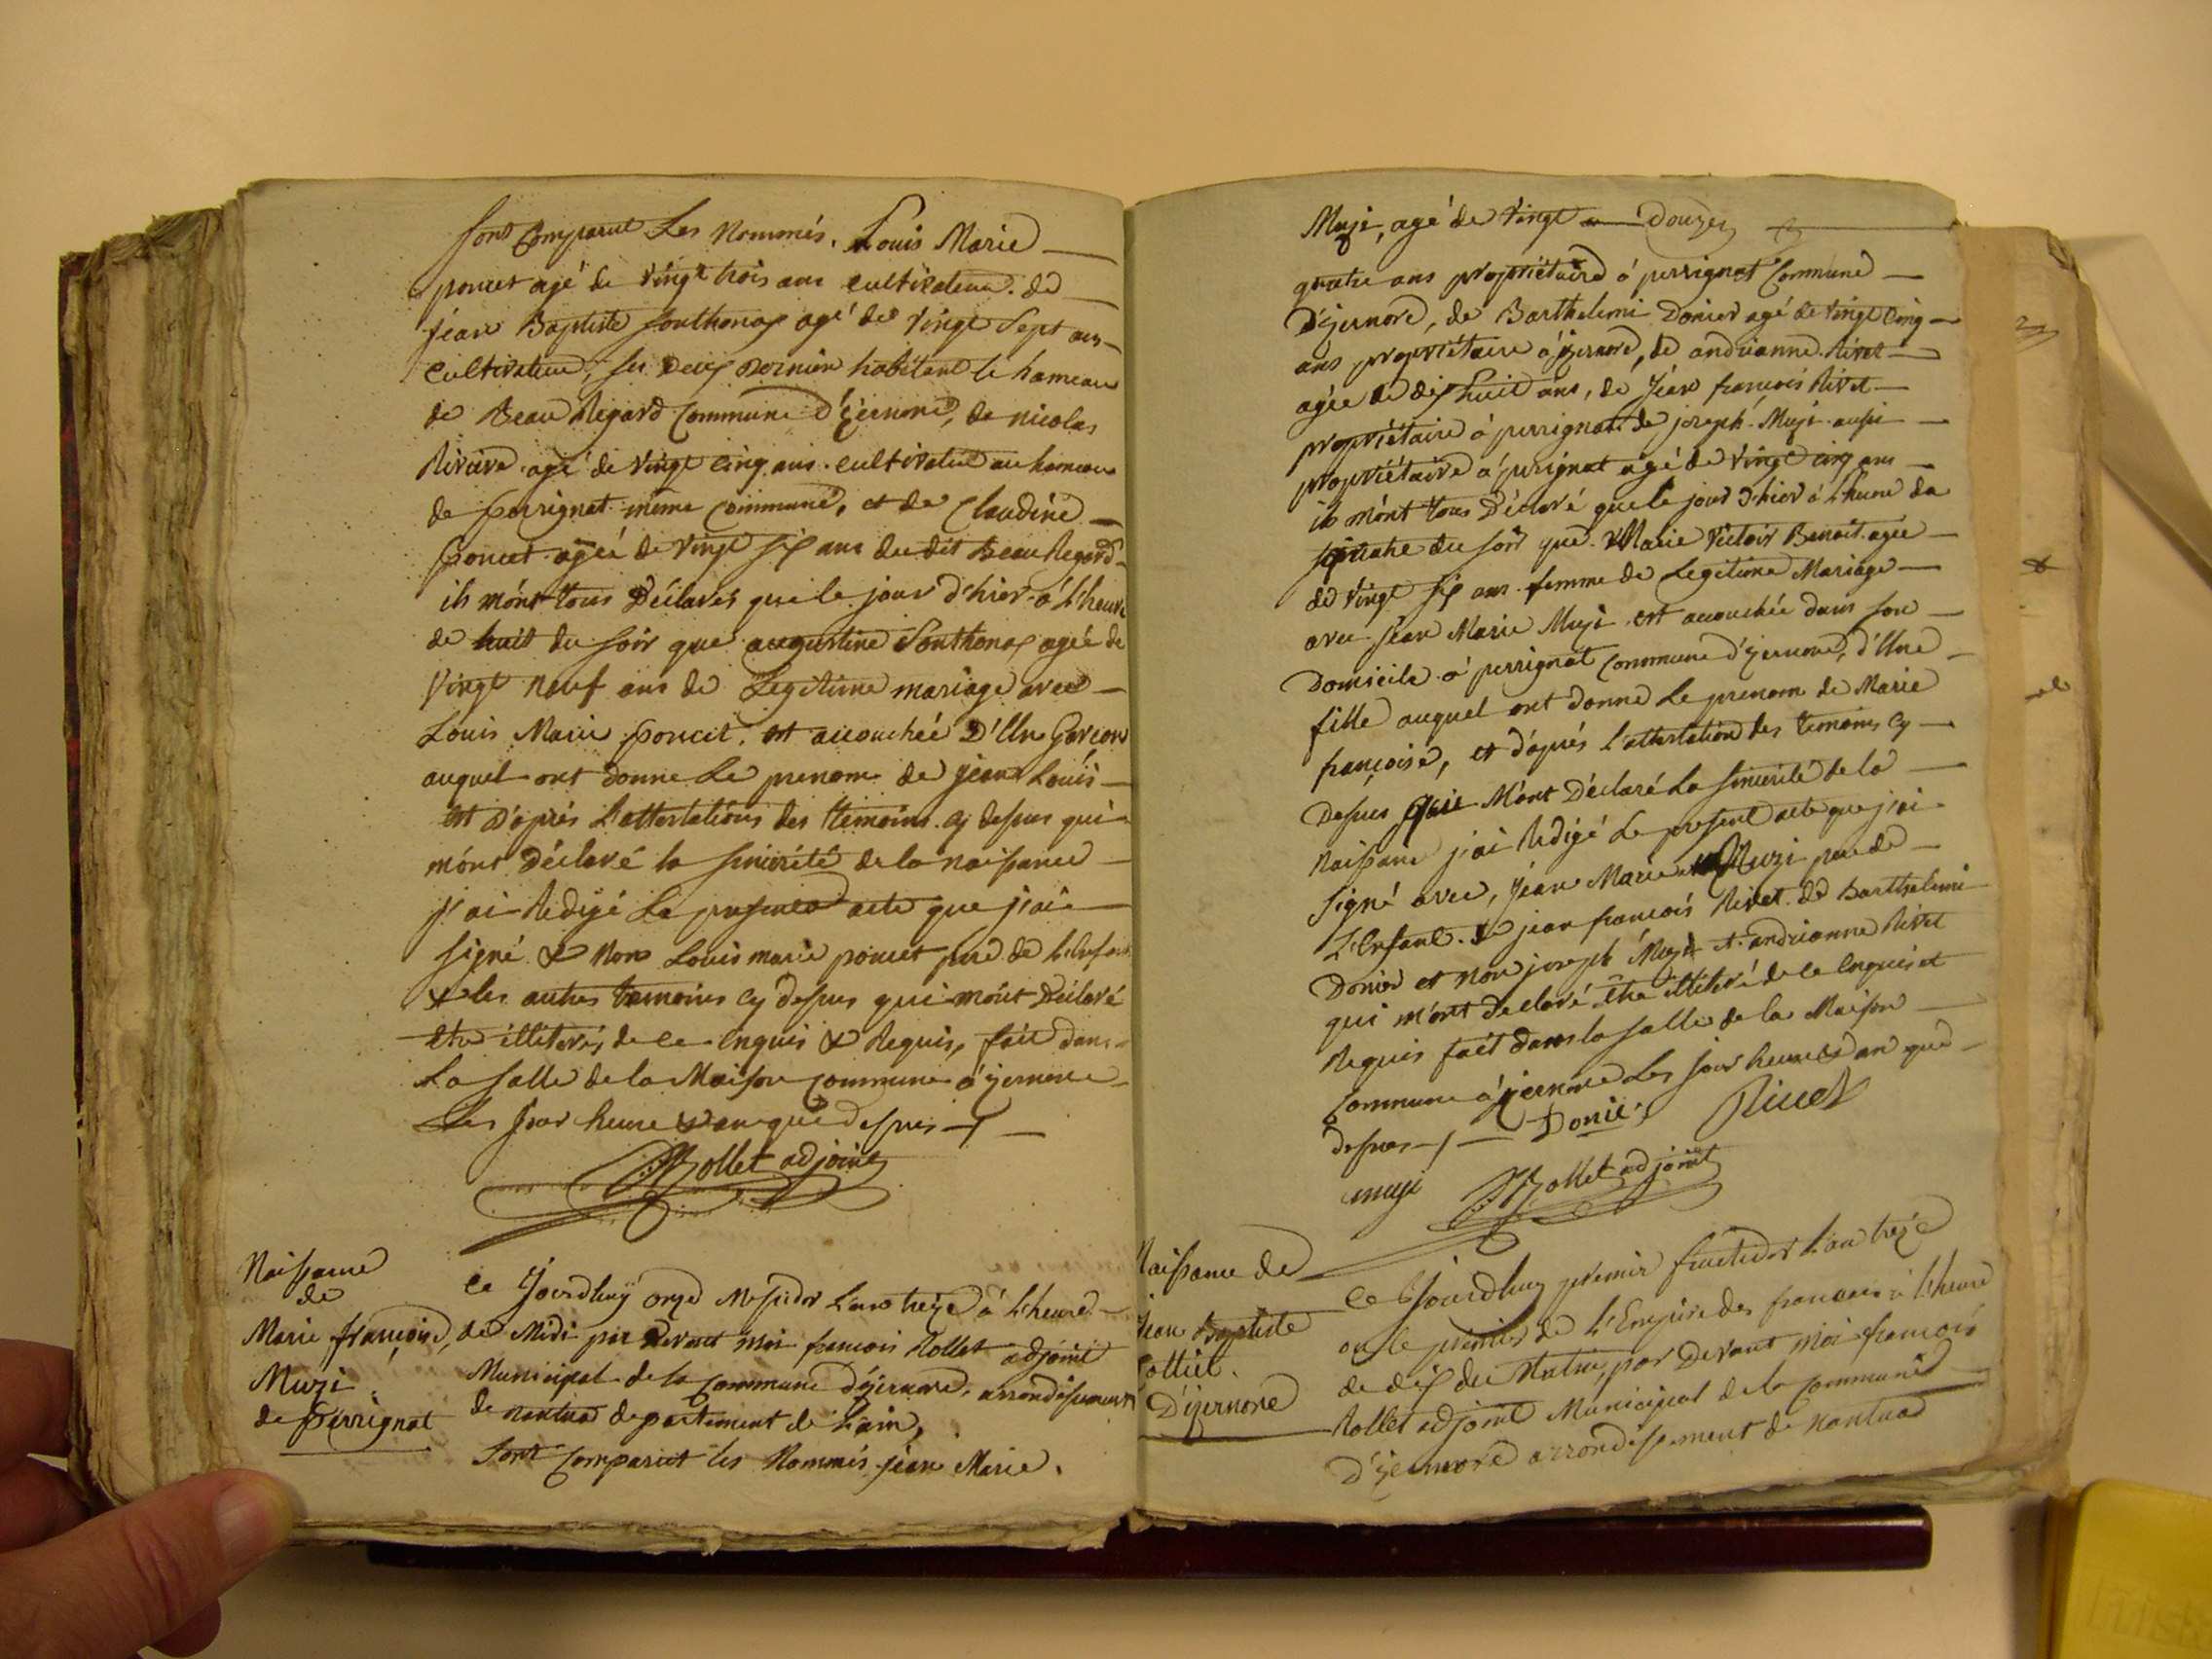 sont Comparut Les Nommés. Louis Marie
poncet agé de vingt trois ans cultivateur. de
jéan Baptiste Sonthonax agé de vingt Sept ans
cultivateur, les deux dernier habitant le hameau
de Beau Regard Commune d'izernore, de nicolas
Riviere agé de vingt cinq ans. cultivateur au hameau
de perrignat même commune, et de Claudine
poncet ageé de vingt six ans du dit Beau Regard
ils m'ont tous Déclarés que le jour d'hier à L'heure
de huit du soir que augustine Sonthonax ageé de
vingt neuf ans de Legitime mariage avec
Louis Marie poncet. est accouchée D'Un Garcon
auquel ont donne Le prenom de jean Louis
et d'après L'attestations des temoins cy dessus qui
m'ont Déclaré la sincérité de la naissance
j'ai Redigé Le present acte que j'ai
signé & Non Louis marie poncet pere de L'Enfant
& les autres temoins cy dessus qui m'ont Déclaré
etre illiterés de ce Enquis & Requis, fait dans
La salle de la Maison commune à izernore
Les jour heure & an que dessus
Rollet adjoint
Naissance
de
Marie françoise,
Muzi
de perrignat
ce Jourdhuy onze Messidor L'an treize à L'heure
de Midi par devant moi francois Rollet adjoint
Municipal de la Commune d'izernore, arrondissement
de nantua departement de Lain,
Sont comparut les Nommés jéan Marie.
Muzi, agé de vingt Douze
quatre ans propriétaire à perrignat Commune
D'izernore, de Barthelemi Donier agé de vingt cinq
ans propriétaire à izernore, de andrianne Rivet
agée de dix huit ans, de Jéan francois Rivet
propriétaire à perrignat de joseph Muzi aussi
propriétaire à perignat agé de vingt cinq ans
ils m'ont tous Déclaré que le jour d'hier à L'heure de
quatre du soir que Marie Victoir Benoit agée
de vingt six ans femme de Legitime Mariage
avec jean Marie Muzi est acouchée dans son
Domicile à perrignat commune d'izernore, d'Une
fille auquel ont donne Le prenom de Marie
françoise, et d'après L'attestation des temoins cy
dessus qui M'ont Déclaré La sincerité de la
naissance j'ai Redigé Le present acte que j'ai
signé avec, Jéan Marie Muzi pere de
L'Enfant. & jean francois Rivet de Barthelemi
Donier et non joseph Muzi et andrianne Rivet
qui m'ont declaré etre illiteré de ce Enquis et
Requis fait dans la salle de la Maison
Commune à izernore Les jour heure & an que
dessus Donier Rivet
muzi Rollet adjoint
Naissance de
jean Baptiste
D'izernore
ce Jourdhuy premier fructidor L'an treize
ou le premier de L'Empire des francais à L'heure
de dix du Matin, par Devant Moi francois
Rollet adjoint Municipal de la Commune
D'izernore arrondissement de Nantua